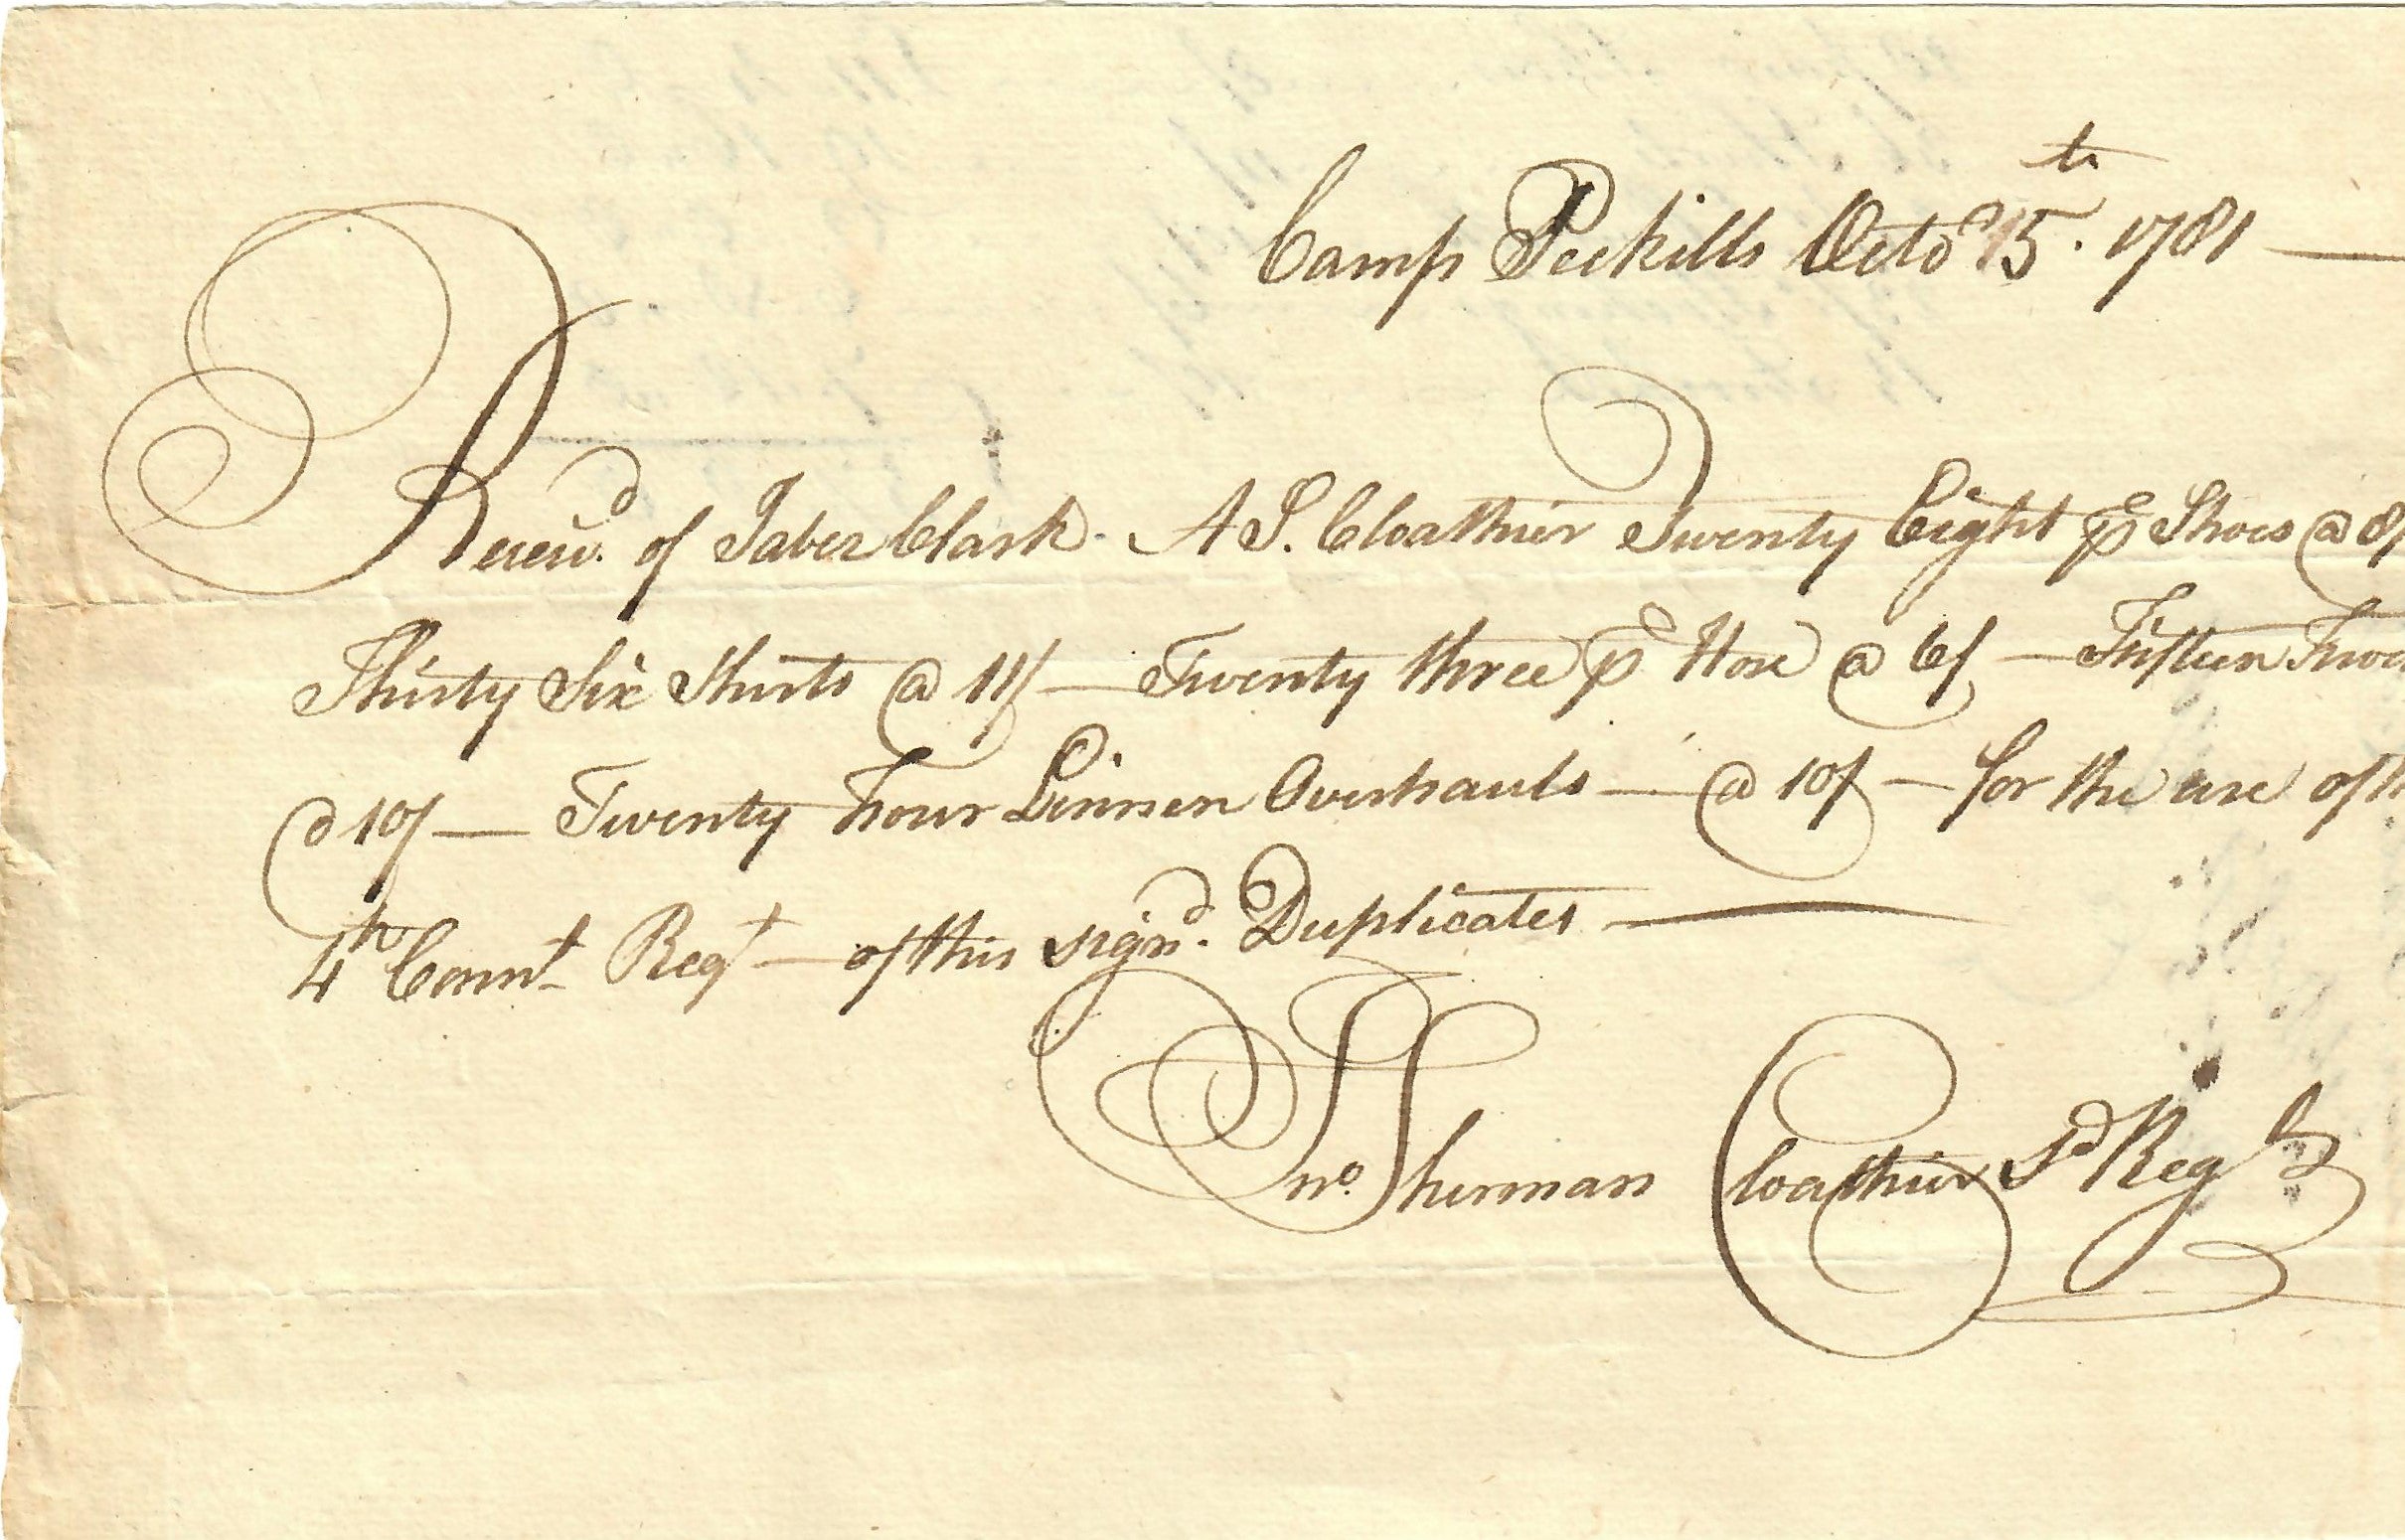 Camp Peekills Octo 15th. 1781 —
Receiv'd. of Taber Clark. A S. Cloathier Twenty Eight pr Shoes @ 8/
Thirty Six Shirts @ 11/ — Twenty three pr Hose @ 6/ — Fifteen
@ 10/ — Twenty Four Linnen Overhauls — @ 10/ — for the use of
4th Connt Regt — of this signd. Duplicates —
Jno. Sherman Cloathier Sd Regt